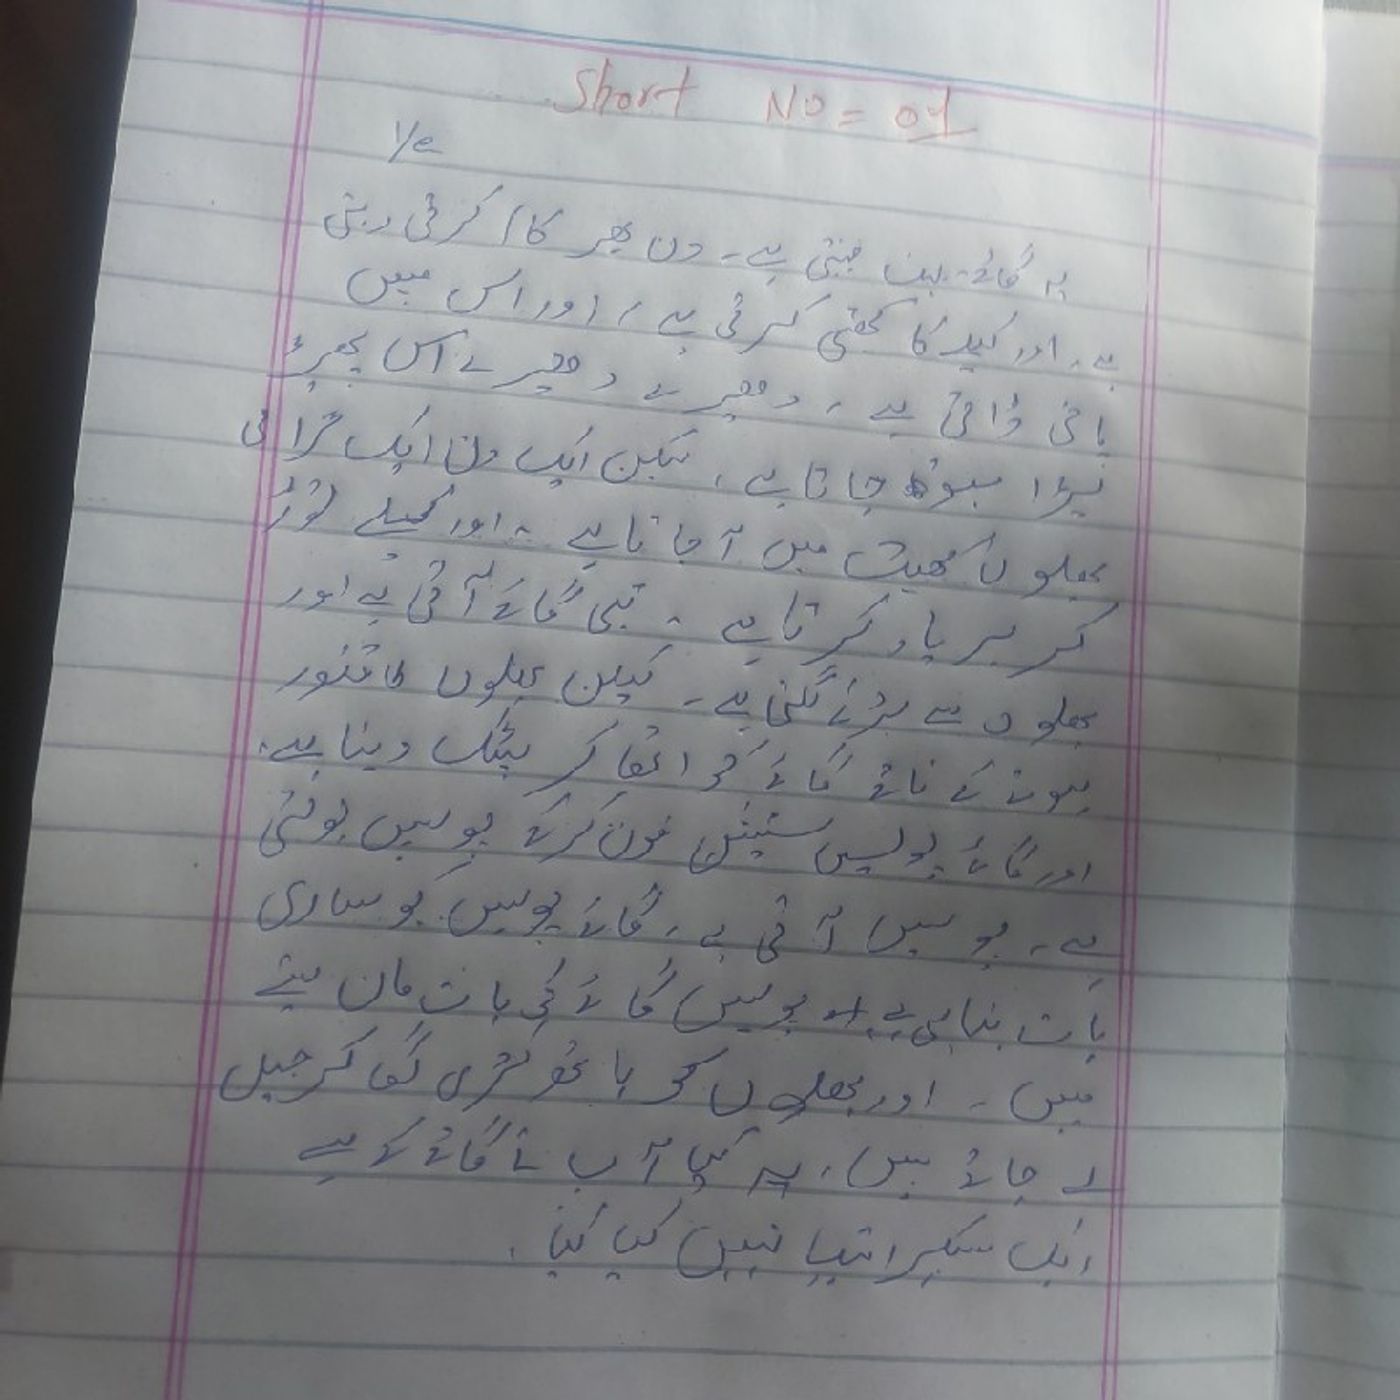 Short No = 01
1/e
یہ گائے بہت محنتی ہے۔ دن بھر کام کرتی رہتی
ہے، اور کیلا کا کھیتی کرتی ہے، اور اس میں
پانی ڈالتی ہے، دھیرے دھیرے اس
بڑا ہوتا جاتا ہے، لیکن ایک دن ایک
بھلوں کھیت میں آ جاتا ہے۔ اور کیلے توڑ
کر برباد کرتا ہے۔ تبھی گائے آتی ہے اور
بھلوں سے لڑنے لگتی ہے۔ لیکن بھلوں طاقتور
ہونے کے ناتے گائے کو اٹھا کر پٹک دیتا ہے۔
اور گائے پولیس سٹیشن فون کرکے پولیس بولتی
ہے۔ پولیس آتی ہے، گائے پولیس کو ساری
بات بتاتی ہے پولیس گائے کی بات مان لیتے
ہیں۔ اور بھلوں کو ہاتھ کڑی لگا کر جیل
لے جاتے ہیں، پر کیا آپ نے گائے کے لیے
ایک سبسکرائب نہیں کیا